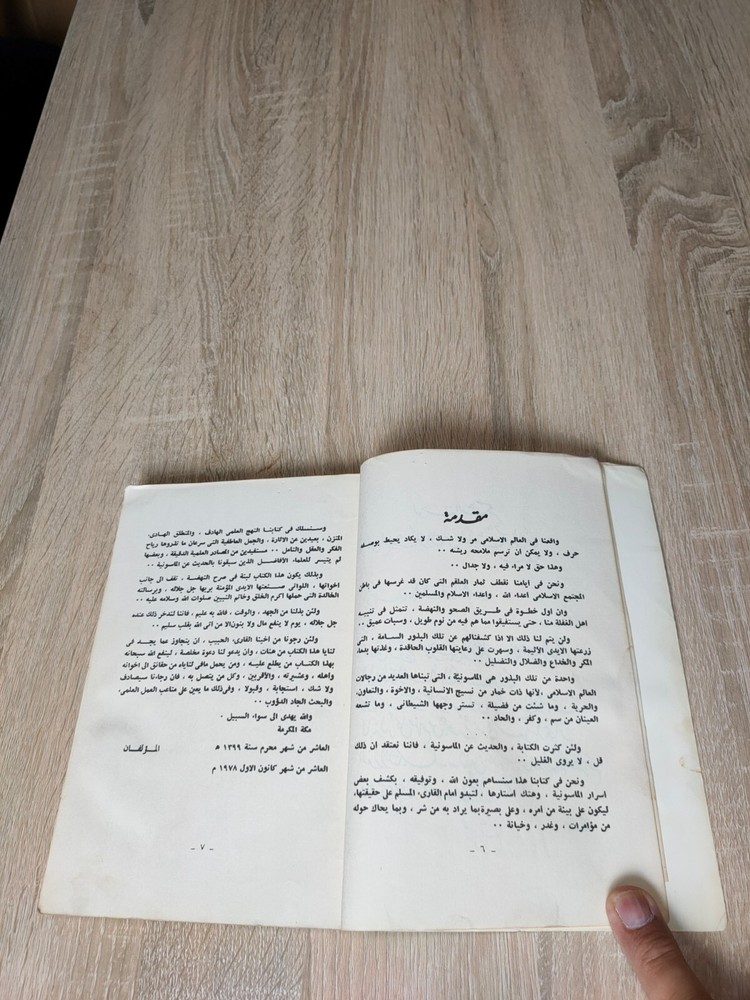 مقدمة
واقعنا في العالم الاسلامي مر ولا شك ، لا يكاد يحيط بوصفه
حرف ، ولا يمكن ان ترسم ملامحه ريشه ..
وهذا حق لا مراء فيه ، ولا جدال ..
ونحن في ايامنا نقطف ثمار العلقم التي كان قد غرسها في
المجتمع الاسلامي اعداء الله ، واعداء الاسلام والمسلمين ..
وان اول خطوة في طريق الصحو والنهضة ، تتمثل في تنبيه
اهل الغفلة منا ، حتى يستفيقوا مما هم فيه من نوم طويل ، وسبات عميق ..
ولن يتم لنا ذلك الا اذا كشفنالهم عن تلك البذور السامة ، التي
زرعتها الايدى الاثيمة ، وسهرت على رعايتها القلوب الحاقدة ، وغذتها
المكر والخداع والضلال والتضليل ..
واحدة من تلك البذور هي الماسونية ، التي نبتاها العديد من رجالات
العالم الاسلامي ، لأنها ذات خمار من نسيج الانسانية ، والاخوة ، والتعاون،
والحرية ، وما شئت من فضيلة ، تستر وجهها الشيطاني ، وما تشعه
العينان من سم ، وكفر ، والحاد ..
ولئن كثرت الكتابة ، والحديث عن الماسونية ، فاننا نعتقد ان ذلك
قل ، لا يروى الغليل ..
ونحن في كتابنا هذا سنساهم بعون الله ، وتوفيقه ، بكشف بعض
اسرار الماسونية ، وهتك استارها ، لتبدو امام القارىء المسلم على حقيقتها،
ليكون على بينة من امره ، وعلى بصيرة بما يراد به من شر ، وبما يحاك حوله
من مؤامرات ، وغدر ، وخيانة ..
- ٦ -
وسنسلك في كتابنا النهج العلمي الهادف ، والمنطق الهادىء
المتزن ، بعيدين عن الاثارة ، والجمل العاطفية التي سرعان ما تذروها رياح
الفكر والعقل والتامل .. مستفيدين من المصادر العلمية الدقيقة ، وبعضها
لم يتيسر للعلماء الأفاضل الذين سبقونا بالحديث عن الماسونية ..
وبذلك يكون هذا الكتاب لبنة في صرح النهضة ، تقف الى جانب
اخواتها ، اللواتي صنعتها الايدى المؤمنة بربها جل جلاله ، وبرسالته
الخالدة التي حملها اكرم الخلق وخاتم النبيين صلوات الله وسلامه عليه ..
ولئن بذلنا من الجهد، والوقت ، فالله به عليم ، فاننا لندخر ذلك عنده
جل جلاله ، يوم لا ينفع مال ولا بنون الا من اتى الله بقلب سليم ..
ولئن رجونا من اخينا القارىء الحبيب ، ان يتجاوز عما يجد في
ثنايا هذا الكتاب من هنات ، وان يدعو لنا دعوة مخلصة ، لينفع الله سبحانه
بهذا الكتاب من يطلع عليه ، ومن يحمل مافي ثناياه من حقائق الى اخوانه
واهله ، وعشيرته ، والأقربين ، وكل من يتصل به ، فان رجاءنا سيصادف
ولا شك ، استجابة ، وقبولا ، وفي ذلك ما يعين على متاعب العمل العلمي،
والبحث الجاد الدؤوب ..
والله يهدى الى سواء السبيل .
مكة المكرمة
العاشر من شهر محرم سنة ١٣٩٩ هـ المؤلفان
العاشر من شهر كانون الاول ١٩٧٨ م
- ٧ -